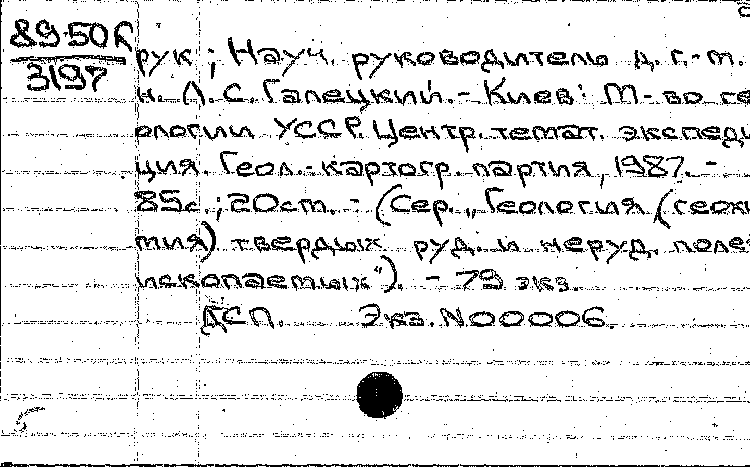 89-50А
3197
рук; Науч. руководитель д. г.-м.
н. Л. С. Галецкий. - Киев: М-во ге
ологии УССР. Центр. темат. экспеди
ция. Геол.-картогр. партия, 1987. -
85с.; 20см. - (Сер. „Геология (геохи
мия) твердых руд. и неруд. полез
ископаемых"). - 79 экз.
ДСП. Экз. N00006.